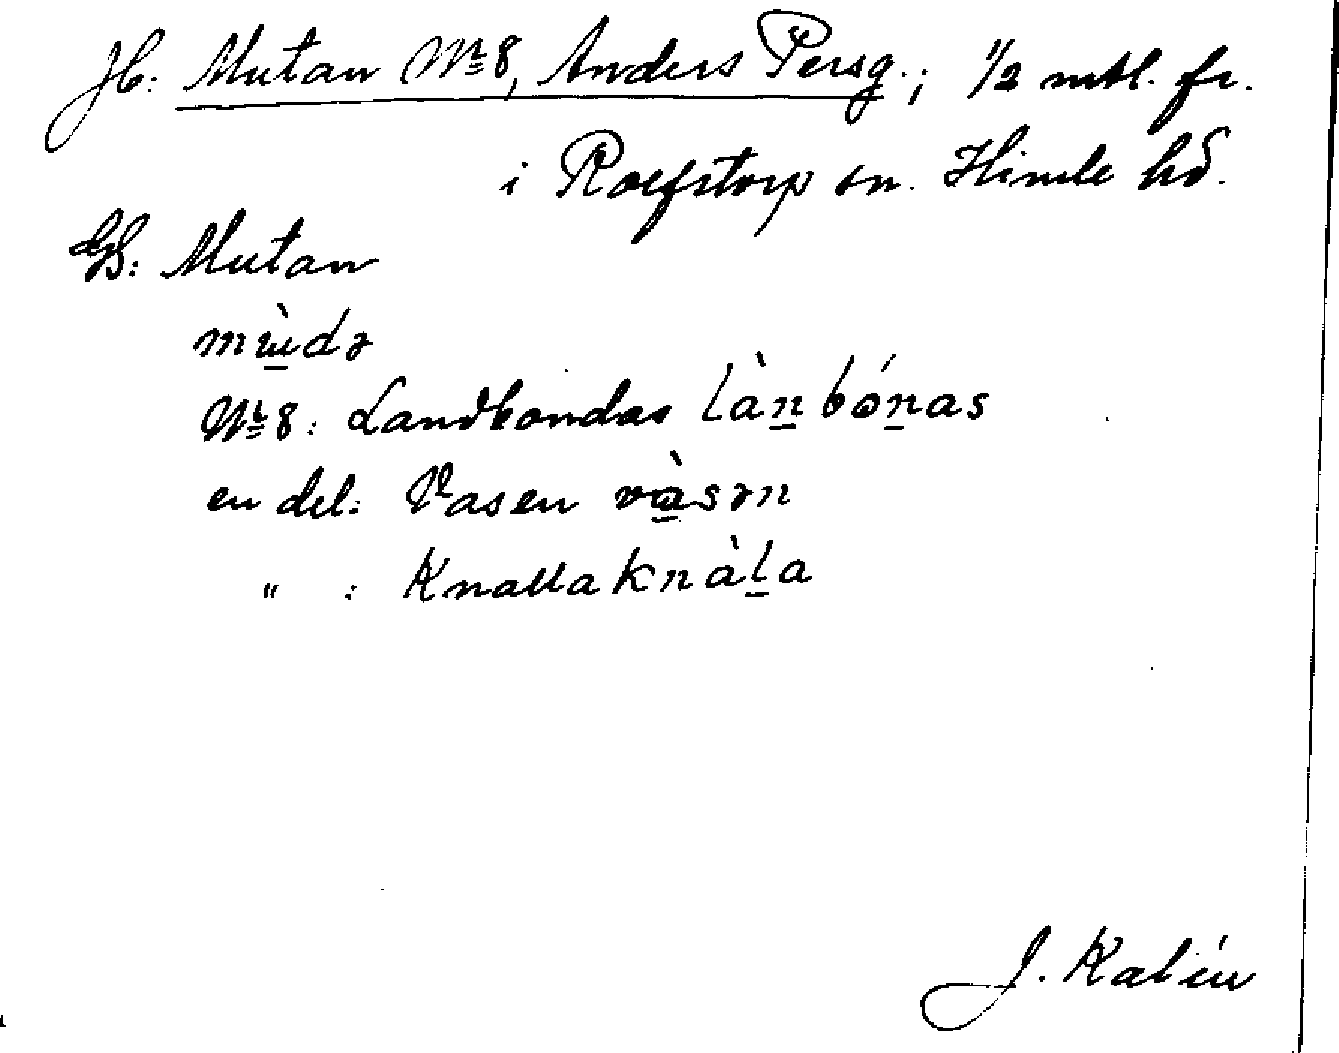 JC: Mutan № 8, Anders Persg.; 1/2 mtl. fr.
i Rolfstorp sn. Himle hd.
GB: Mutan
mùdə
№ 8: Landbondas làn̲bón̲as
en del: Vasen vàsən
" : Knalla knàl̲a
J. Kalén